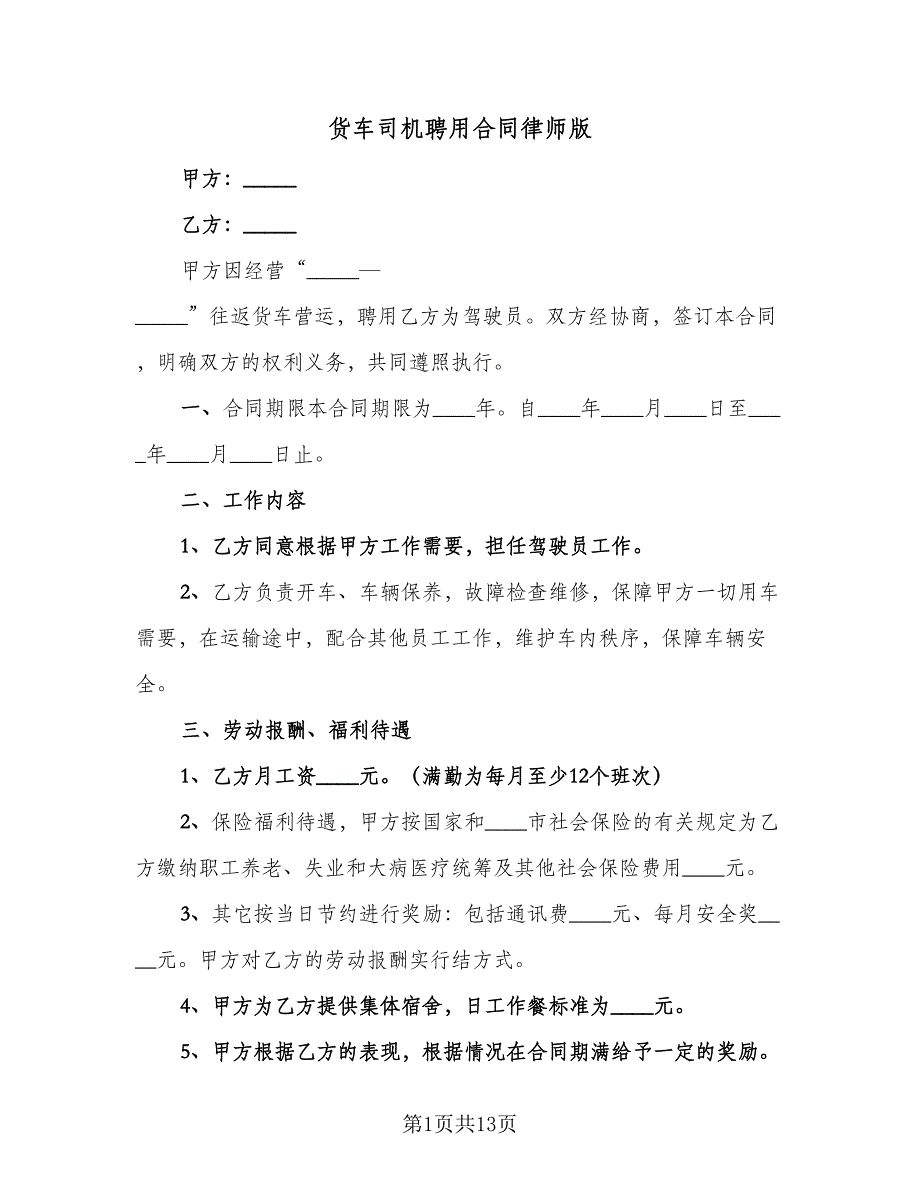 货车司机聘用合同律师版
甲方：_____
乙方：_____
甲方因经营“_____—
_____”往返货车营运，聘用乙方为驾驶员。双方经协商，签订本合同
，明确双方的权利义务，共同遵照执行。
一、合同期限本合同期限为____年。自____年____月____日至___
_年____月____日止。
二、工作内容
1、乙方同意根据甲方工作需要，担任驾驶员工作。
2、乙方负责开车、车辆保养，故障检查维修，保障甲方一切用车
需要，在运输途中，配合其他员工工作，维护车内秩序，保障车辆安
全。
三、劳动报酬、福利待遇
1、乙方月工资____元。（满勤为每月至少12个班次）
2、保险福利待遇，甲方按国家和____市社会保险的有关规定为乙
方缴纳职工养老、失业和大病医疗统筹及其他社会保险费用____元。
3、其它按当日节约进行奖励：包括通讯费____元、每月安全奖__
__元。甲方对乙方的劳动报酬实行结方式。
4、甲方为乙方提供集体宿舍，日工作餐标准为____元。
5、甲方根据乙方的表现，根据情况在合同期满给予一定的奖励。
第1页共13页